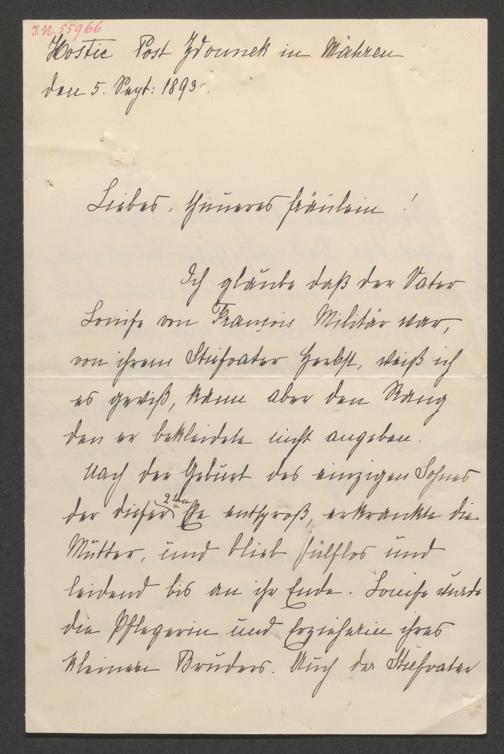 J.N. 55966
Hostic Post Zdounek in Mähren
den 5. Sept: 1893.
Liebes, theueres Fräulein!
Ich glaube daß der Vater
Louise von François Militär war,
von ihrem Stiefvater Herbst, weiß ich
es gewiß, kann aber den Rang
den er bekleidete nicht angeben.
Nach der Geburt des einzigen Sohnes
der dieser 2ten Ehe entsproß, erkrankte die
Mutter, und blieb hülflos und
leidend bis an ihr Ende. Louise wurde
die Pflegerin und Erzieherin ihres
kleinen Bruders. Auch der Stiefvater